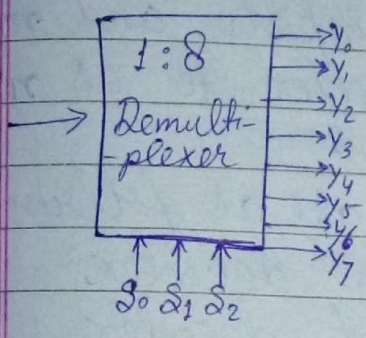 1:8
Demulti-
-plexer
Y0
Y1
Y2
Y3
Y4
Y5
Y6
Y7
S0 S1 S2